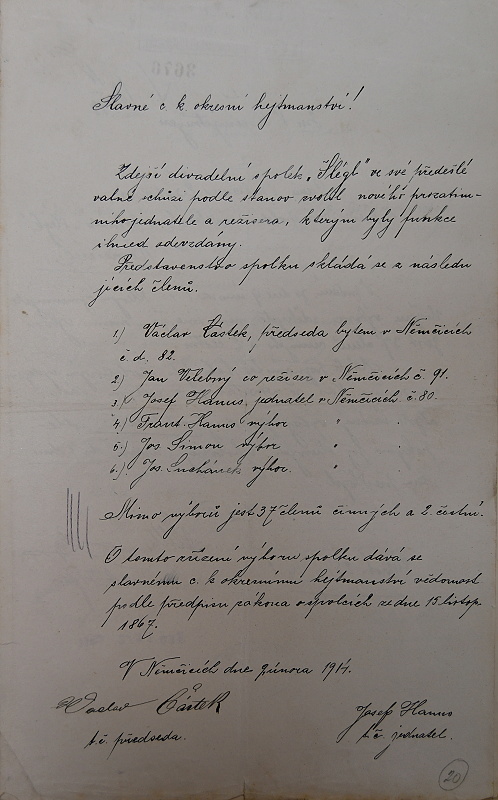 Slavné c. k. okresní hejtmanství!
Zdejší divadelní spolek „Šlégl" ve své předešlé
valné schůzi podle stanov zvolil nového prozatim-
ního jednatele a režisera, kterým byly funkce
ihned odevzdány.
Představenstvo spolku skládá se z následu
jících členů.
1.) Václav Částek, předseda bytem v Němčicích
č. d. 82.
2.) Jan Velebný co režiser v Němčicích č. 91.
3.) Josef Hanus, jednatel v Němčicích č. 80.
4.) Frant. Hanus výbor " "
5.) Jos. Šimon výbor " "
6.) Jos. Suchánek výbor. " "
Mimo výborů jest 37 členů činných a 2. čestní.
O tomto zřízení výboru spolku dává se
slavnému c. k. okresnímu hejtmanství vědomost
podle předpisu zákona o spolcích ze dne 15 listop.
1867.
V Němčicích dne února 1914.
Václav Částek
t. č. předseda.
Josef Hanus
t. č. jednatel.
20